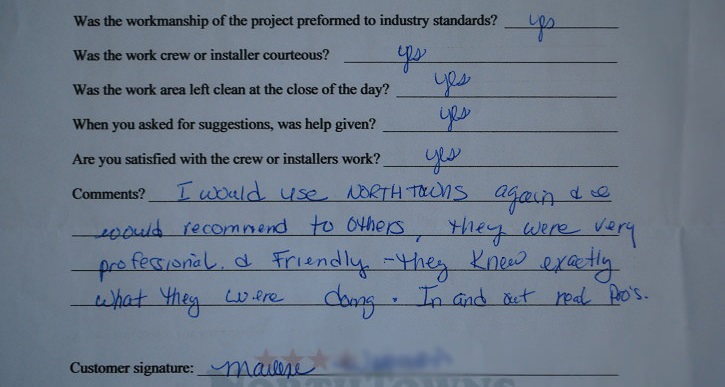 Was the workmanship of the project preformed to industry standards? yes
Was the work crew or installer courteous? yes
Was the work area left clean at the close of the day? yes
When you asked for suggestions, was help given? yes
Are you satisfied with the crew or installers work? yes
Comments? I would use NORTHTOWNS again &
would recommend to others, they were very
professional. & Friendly - they Knew exactly
what they were doing. In and out real Pro's.
Customer signature:
NORTHTOWNS